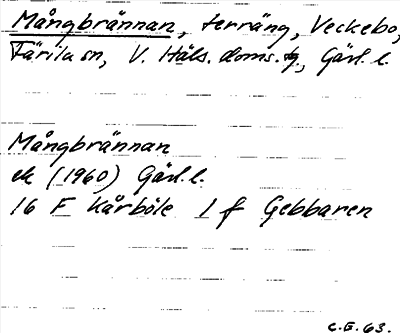 Mångbrännan, terräng, Veckebo,
Färila sn, V. Häls. doms.tg., Gävl. l.
Mångbrännan
ek (1960) Gävl. l.
16 F Kårböle 1 f Gebbaren
C.E. 63.